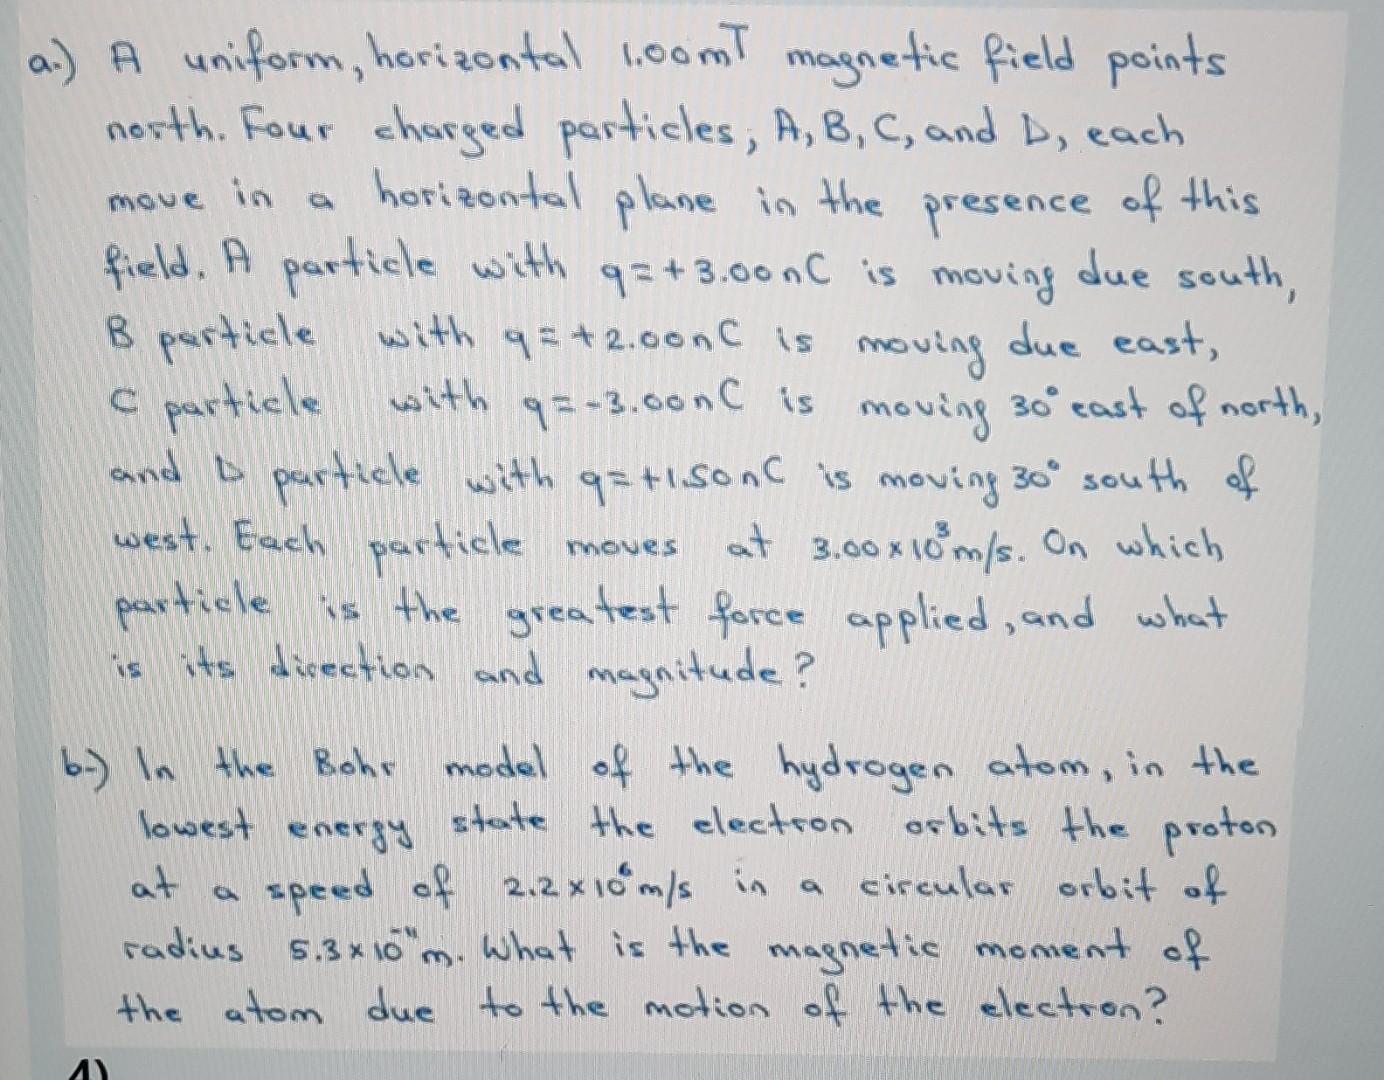 a-) A uniform, horizontal 1.00mT magnetic field points
north. Four charged particles; A, B, C, and D, each
move in a horizontal plane in the presence of this
field. A particle with q=+3.00nC is moving due south,
B particle with q=+2.00nC is moving due east,
C particle with q=-3.00nC is moving 30° east of north,
and D particle with q=+1.50nC is moving 30° south of
west. Each particle moves at 3.00×10³m/s. On which
particle is the greatest force applied, and what
is its direction and magnitude?
b-) In the Bohr model of the hydrogen atom, in the
lowest energy state the electron orbits the proton
at a speed of 2.2×10⁶m/s in a circular orbit of
radius 5.3×10⁻¹¹m. What is the magnetic moment of
the atom due to the motion of the electron?